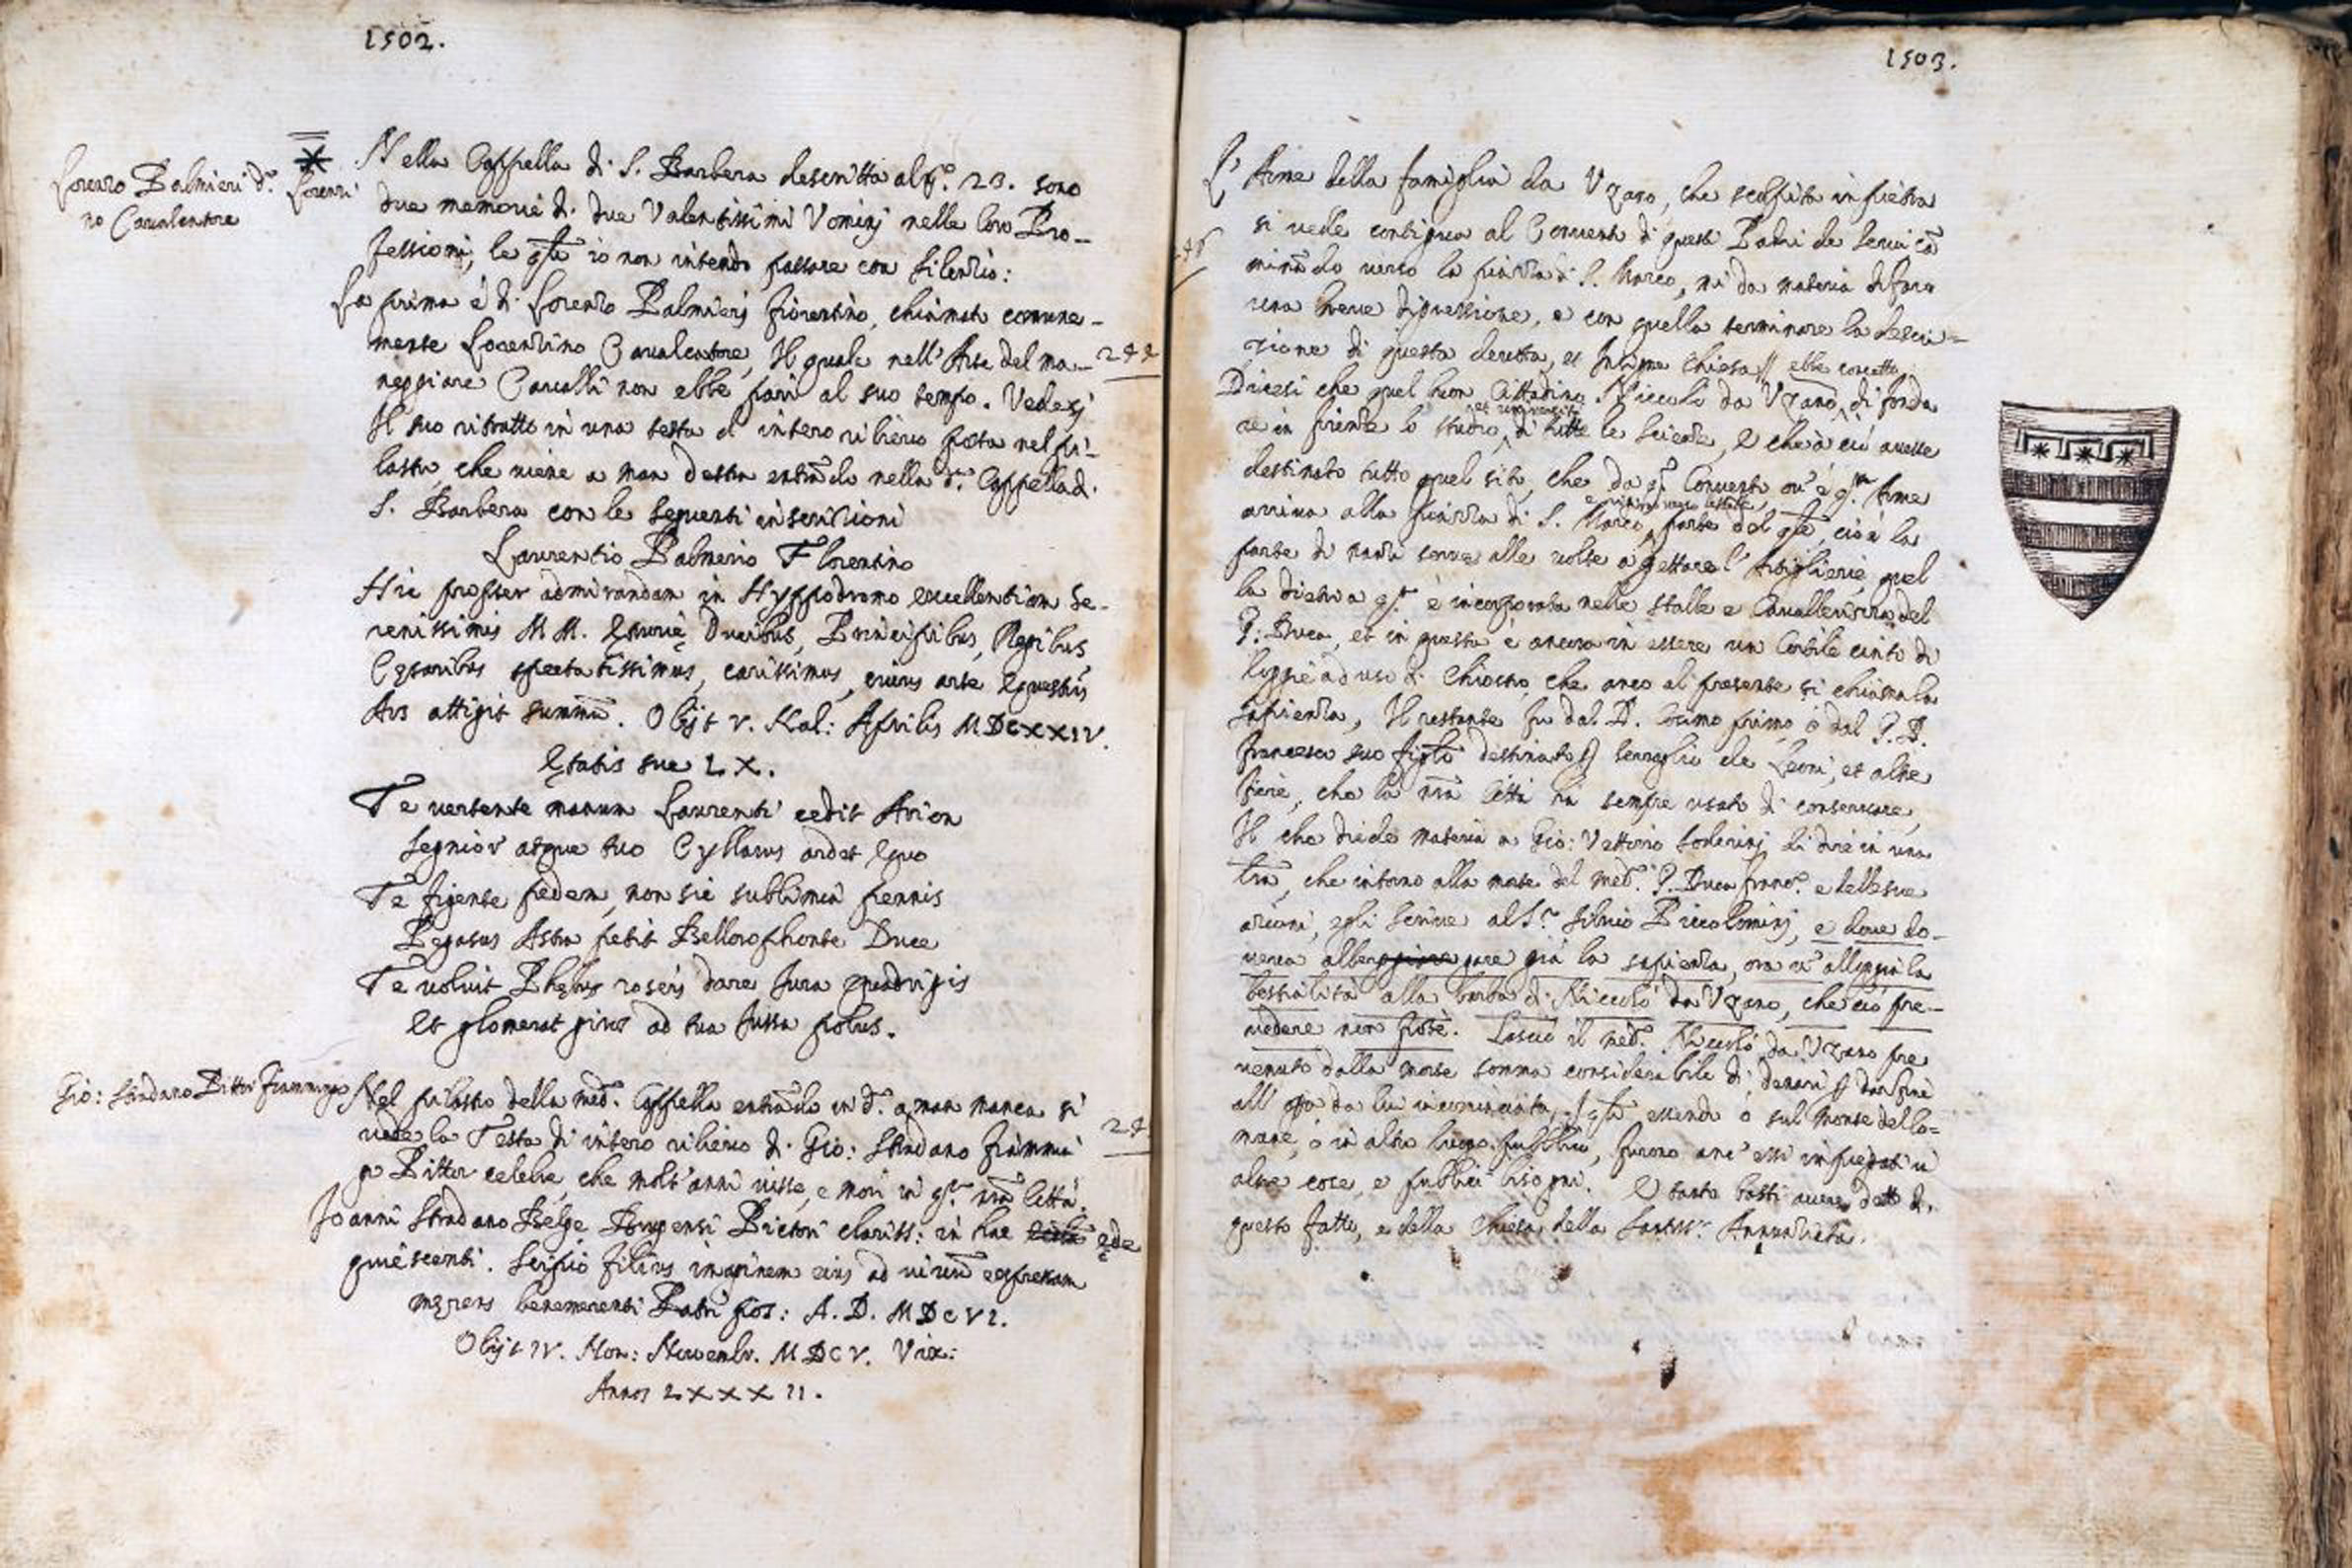 1502.
Lorenzo Palmieri d.º Lorenzi
no Cavalcatore
Nella Cappella di S. Barbera descritta al n.º 23. sono
due memorie di due Valentissimi Vominj nelle loro Pro-
fessioni, le q̃li io non intendo passare con silenzio:
La prima è di Lorenzo Palmierj fiorentino, chiamato comune-
mente Lorenzino Cavalcatore, Il quale nell' Arte del ma-
neggiare Cavalli non ebbe pari al suo tempo. Vedesj
Il suo ritratto in una testa di intero rilievo posta nel pi-
lastro, che viene a man destra entrãdo nella d.ª Cappella di
S. Barbera con le seguenti inscrizioni
Laurentio Palmerio Florentino
Hic propter admirandam in Hyppodromo excellentiam Se-
renissimis MM. Etrurię Ducibus, Principibus, Regibus,
Cęsaribus spectatissimus, carissimus, cuius arte Equestris
Ars attigit summũ. Obijt V. Kal: Aprilis MDCXXIV.
Ętatis sue LX.
Te vertente manum Laurenti cedit Arion
Segnior atque tuo Cyllarus ardet Equo
Te figente pedem, non sic sublimia pennis
Pegasus Astra petit Bellorophonte Duce
Te voluit Phębus roseis dare Jura quadrigis
Et glomerat giros ad tua Jussa polus.
Gio: Stradano Pittor Fiammingo
Nel pilastro della med.ª Cappella entrãdo in d.ª a man manca si
vede la Testa di intero rilievo di Gio: Stradano fiammin
go Pittor celebre, che molt' anni visse, e morì in q.ª nrã Città.
Joanni Stradano Belgę Brugensi Pictori clariss: in hac ęde
quiescenti. Scipio filius imaginem eius ad vivũ expressam
męrens benemerenti Patri pos: A. D. MDCVI.
Obijt IV. Non: Novembr. MDCV. Vix:
Annos LXXXII.
1503.
L' Arme della famiglia da Vzano, che scolpita in pietra
si vede contigua al Convento di questi Padri de Servi cã
minãdo verso la piazza di S. Marco, mi da materia di fare
una breve digressione, e con quella terminare la descri-
zione di questa devota, et Insigne Chiesa //
Dicesi che quel buon Cittadino Niccolò da Vzano, ebbe concetto di fonda
re in firenze lo studio, et università di tutte le scienze, e che à ciò avesse
destinato tutto quel sito, che da q.º Convento ov' è q.ta Arme
arriva alla piazza di S. Marco, parte del q̃le, cioè la
parte di serve alle volte a gettare l' Artiglierie, quel
la dietro a q.ª è incorporata nelle stalle e Cavallerizza del
G: Duca, et in questa è ancora in essere un Cortile cinto di
loggie ad uso di Chiostro, che anco al presente si chiama la
sapienza, Il restante fu dal D. Cosimo primo ò dal G. D.
francesco suo figlo destinato serraglio de Leoni, et altre
fiere, che la nrã Città hà sempre usato di conservare,
Il che diede materia a Gio: Vettorio Soderinj di dire in una
lrã, che intorno alla morte del med.º G. Duca franc.º e delle sue
azioni, egli scrive al S.r Silvio Piccolominj, e dove do-
veva albergare già la sapienza, ora v' alloggia la
bestialità alla barba di Niccolò da Vzano, che ciò pre-
vedere non potè. Lasciò il med.º Niccolò da Vzano pre
venuto dalla morte somma considerabile di denari dar fine
all' opa da lui incominciata, essendo ò sul Monte dello
mare, ò in altro luogo pubblico, furono anc' essi impiegati in
altre cose, e pubblici bisogni. E tanto basti avere detto di
questo fatto, e della Chiesa della Santiss.ª Annunziata.